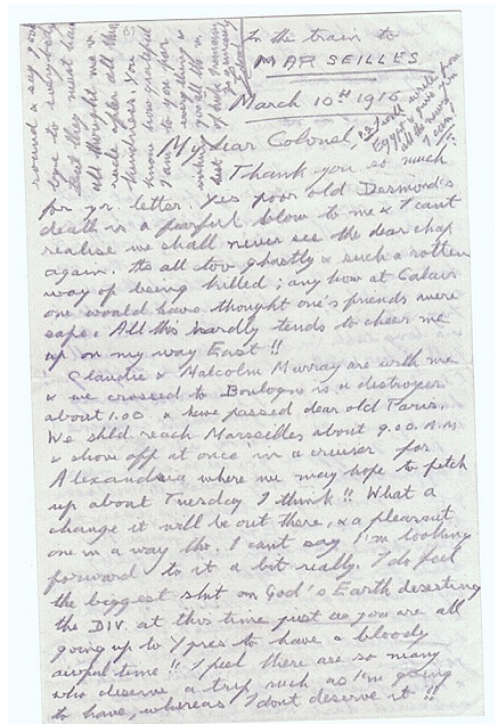 In the train to
MARSEILLES
March 10th 1916
My dear Colonel,
Thank you so much
for yr. letter. Yes poor old Desmond's
death is a fearful blow to me & I can't
realise we shall never see the dear chap
again. Its all too ghastly & such a rotten
way of being killed; any how at Calais
one would have thought one's friends were
safe. All this hardly tends to cheer me
up on my way East!!
Claudie & Malcolm Murray are with me
& we crossed to Boulogne in a destroyer
about 1.00 & have passed dear old Paris.
We shld reach Marseilles about 9.00 A.M
& shove off at once in a cruiser for
Alexandria where we may hope to fetch
up about Tuesday I think!! What a
change it will be out there, & a pleasant
one in a way tho. I can't say I'm looking
forward to it a bit really. I do feel
the biggest shit on God's Earth deserting
the DIV. at this time just as you are all
going up to Ypres to have a bloody
awful time!! I feel there are so many
who deserve a trip such as I'm going
to have, whereas I dont deserve it!!
round & say
love to everybody
that they must have
all thought me a
after all their
kindness. You
know how grateful
I am to you for
everything &
you all the
best of luck
P.S. I will write from
Egypt & give you
all the news
I can